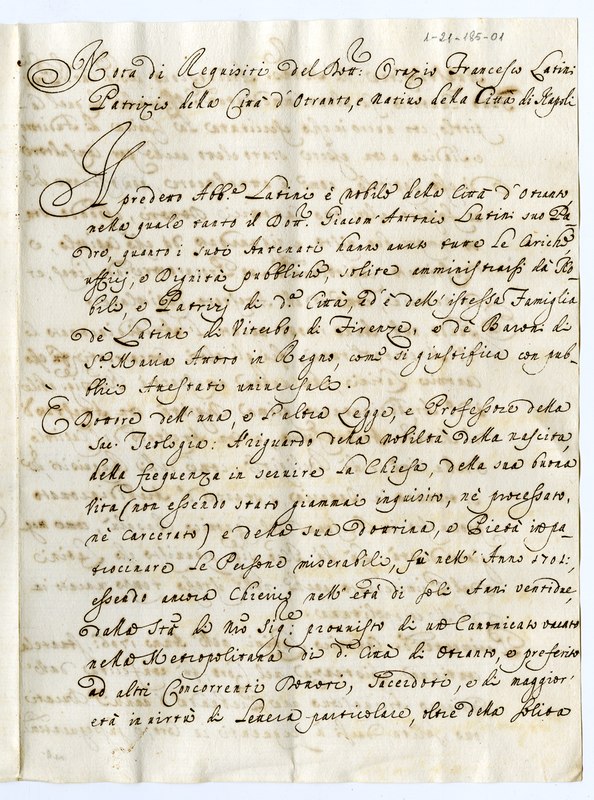 1-21-185-01
Nota di Requisiti del Dott.r: Orazio Francesco Latini
Patrizio della Città d'Otranto, e nativo della Città di Napoli
Il predetto Abb.e Latini è nobile della Città d'Otranto
nella quale tanto il Dott.r Giacom'Antonio Latini suo Pa-
dre, quanto i suoi Antenati hanno avuto tutte le Cariche,
ufficij, e Dignità pubbliche, solite amministrarsi dà No-
bili, e Patrizj di d.a Città ed è dell'istessa Famiglia
de Latini di Viterbo, di Firenze, e de Baroni di
S.a Maria in Regno, come si giustifica con pub-
blici Attestati universali.
È Dottore dell'una, e l'altra Legge, e Professore della
Sac: Teologia: A riguardo della nobiltà della nascita,
della frequenza in servire la Chiesa, della sua buona
vita (non essendo stato giammai inquisito, nè processato,
nè Carcerato) e della sua dottrina, e Pietà in pa-
trocinare le Persone miserabili, fù nell'Anno 1701:,
essendo ancora Chierico nell'età di soli Anni ventidue,
dalla S.tà di Nro Sig.re: provvisto di un Canonicato vacato
nella Metropolitana di d.a Città di Otranto, e preferito
ad altri Concorrenti Dottori, Sacerdoti, e di maggior'
età in virtù di Lettera particolare, oltre della solita